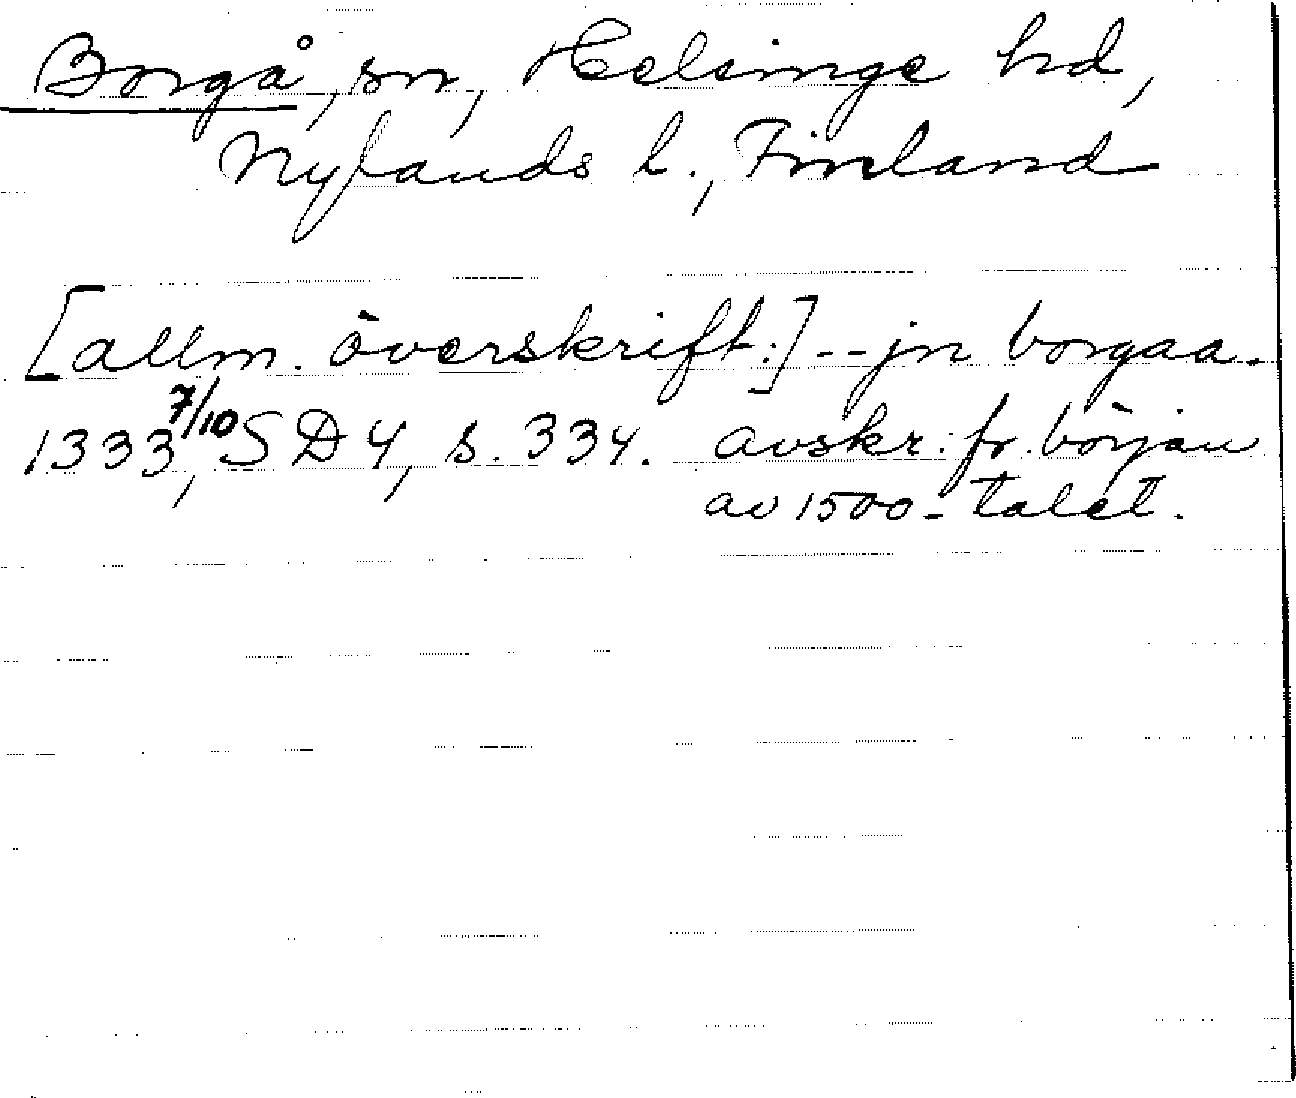 Borgå, sn, Helsinge hd,
Nylands l., Finland
[allm. överskrift:] -- jn borgaa.
1333 7/10, SD 4, s. 334. avskr. fr. början
av 1500-talet.